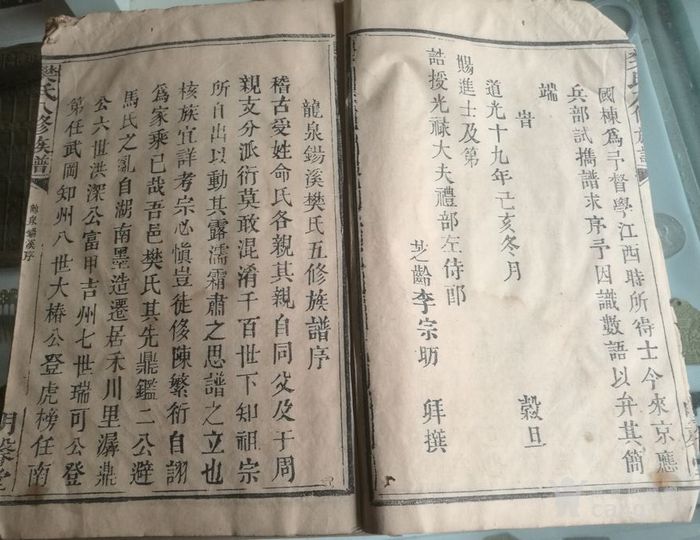 國棟爲予督學江西時所得士今來京應
兵部試攜譜求序予因識數語以弁其簡
端 旹
道光十九年己亥冬月 穀旦
賜進士及第
誥授光祿大夫禮部左侍郎
芝齡李宗昉 拜撰
樊氏八修族譜
龍泉鍚溪樊氏五修族譜序
稽古受姓命氏各親其親自同父及于周
親支分派衍莫敢混淆千百世下知祖宗
所自出以動其露濡霜肅之思譜之立也
核族宜詳考宗必愼豈徒侈陳繁衍自詡
爲家乘已哉吾邑樊氏其先鼎鑑二公避
馬氏之亂自湖南墨造遷居禾川里潺鼎
公六世洪深公富甲吉州七世瑞可公登
第任武岡知州八世大椿公登虎榜任南
樊氏八修族譜
龍泉鍚溪序